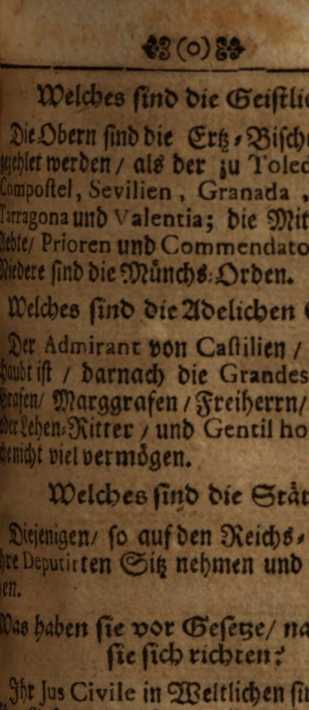 (o)
Welches sind die Geistli
Die Obern sind die Ertz-Bisch
gezehlet werden / als der zu Toled
Compostel, Sevilien, Granada,
Tarragona und Valentia; die Mit
Aebte/ Prioren und Commendato
Niedere sind die Münchs-Orden.
Welches sind die Adelichen
Der Admirant von Castilien /
haubt ist / darnach die Grandes
Grafen/ Marggrafen / Freiherrn/
oder Lehen-Ritter / und Gentil ho
denicht viel vermögen.
Welches sind die Stät
Diejenigen/ so auf den Reichs-
ihre Deputirten Sitz nehmen und
en.
Was haben sie vor Gesetze/ na
sie sich richten?
Ihr Jus Civile in Weltlichen sin